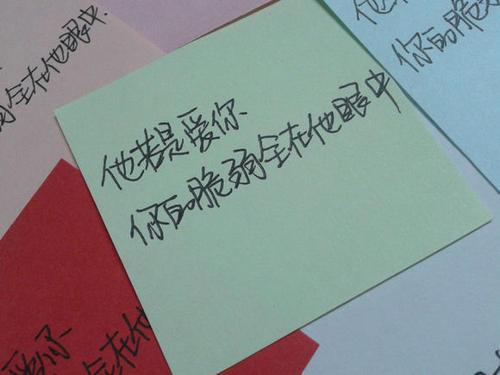 他若是爱你
你的脆弱全在他眼中
全在他眼中
他
你的脆
爱你
全在他